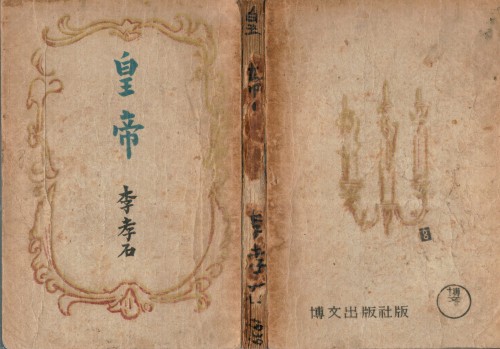 皇帝
李孝石
皇帝
李孝石
1939
博文出版社版
博文